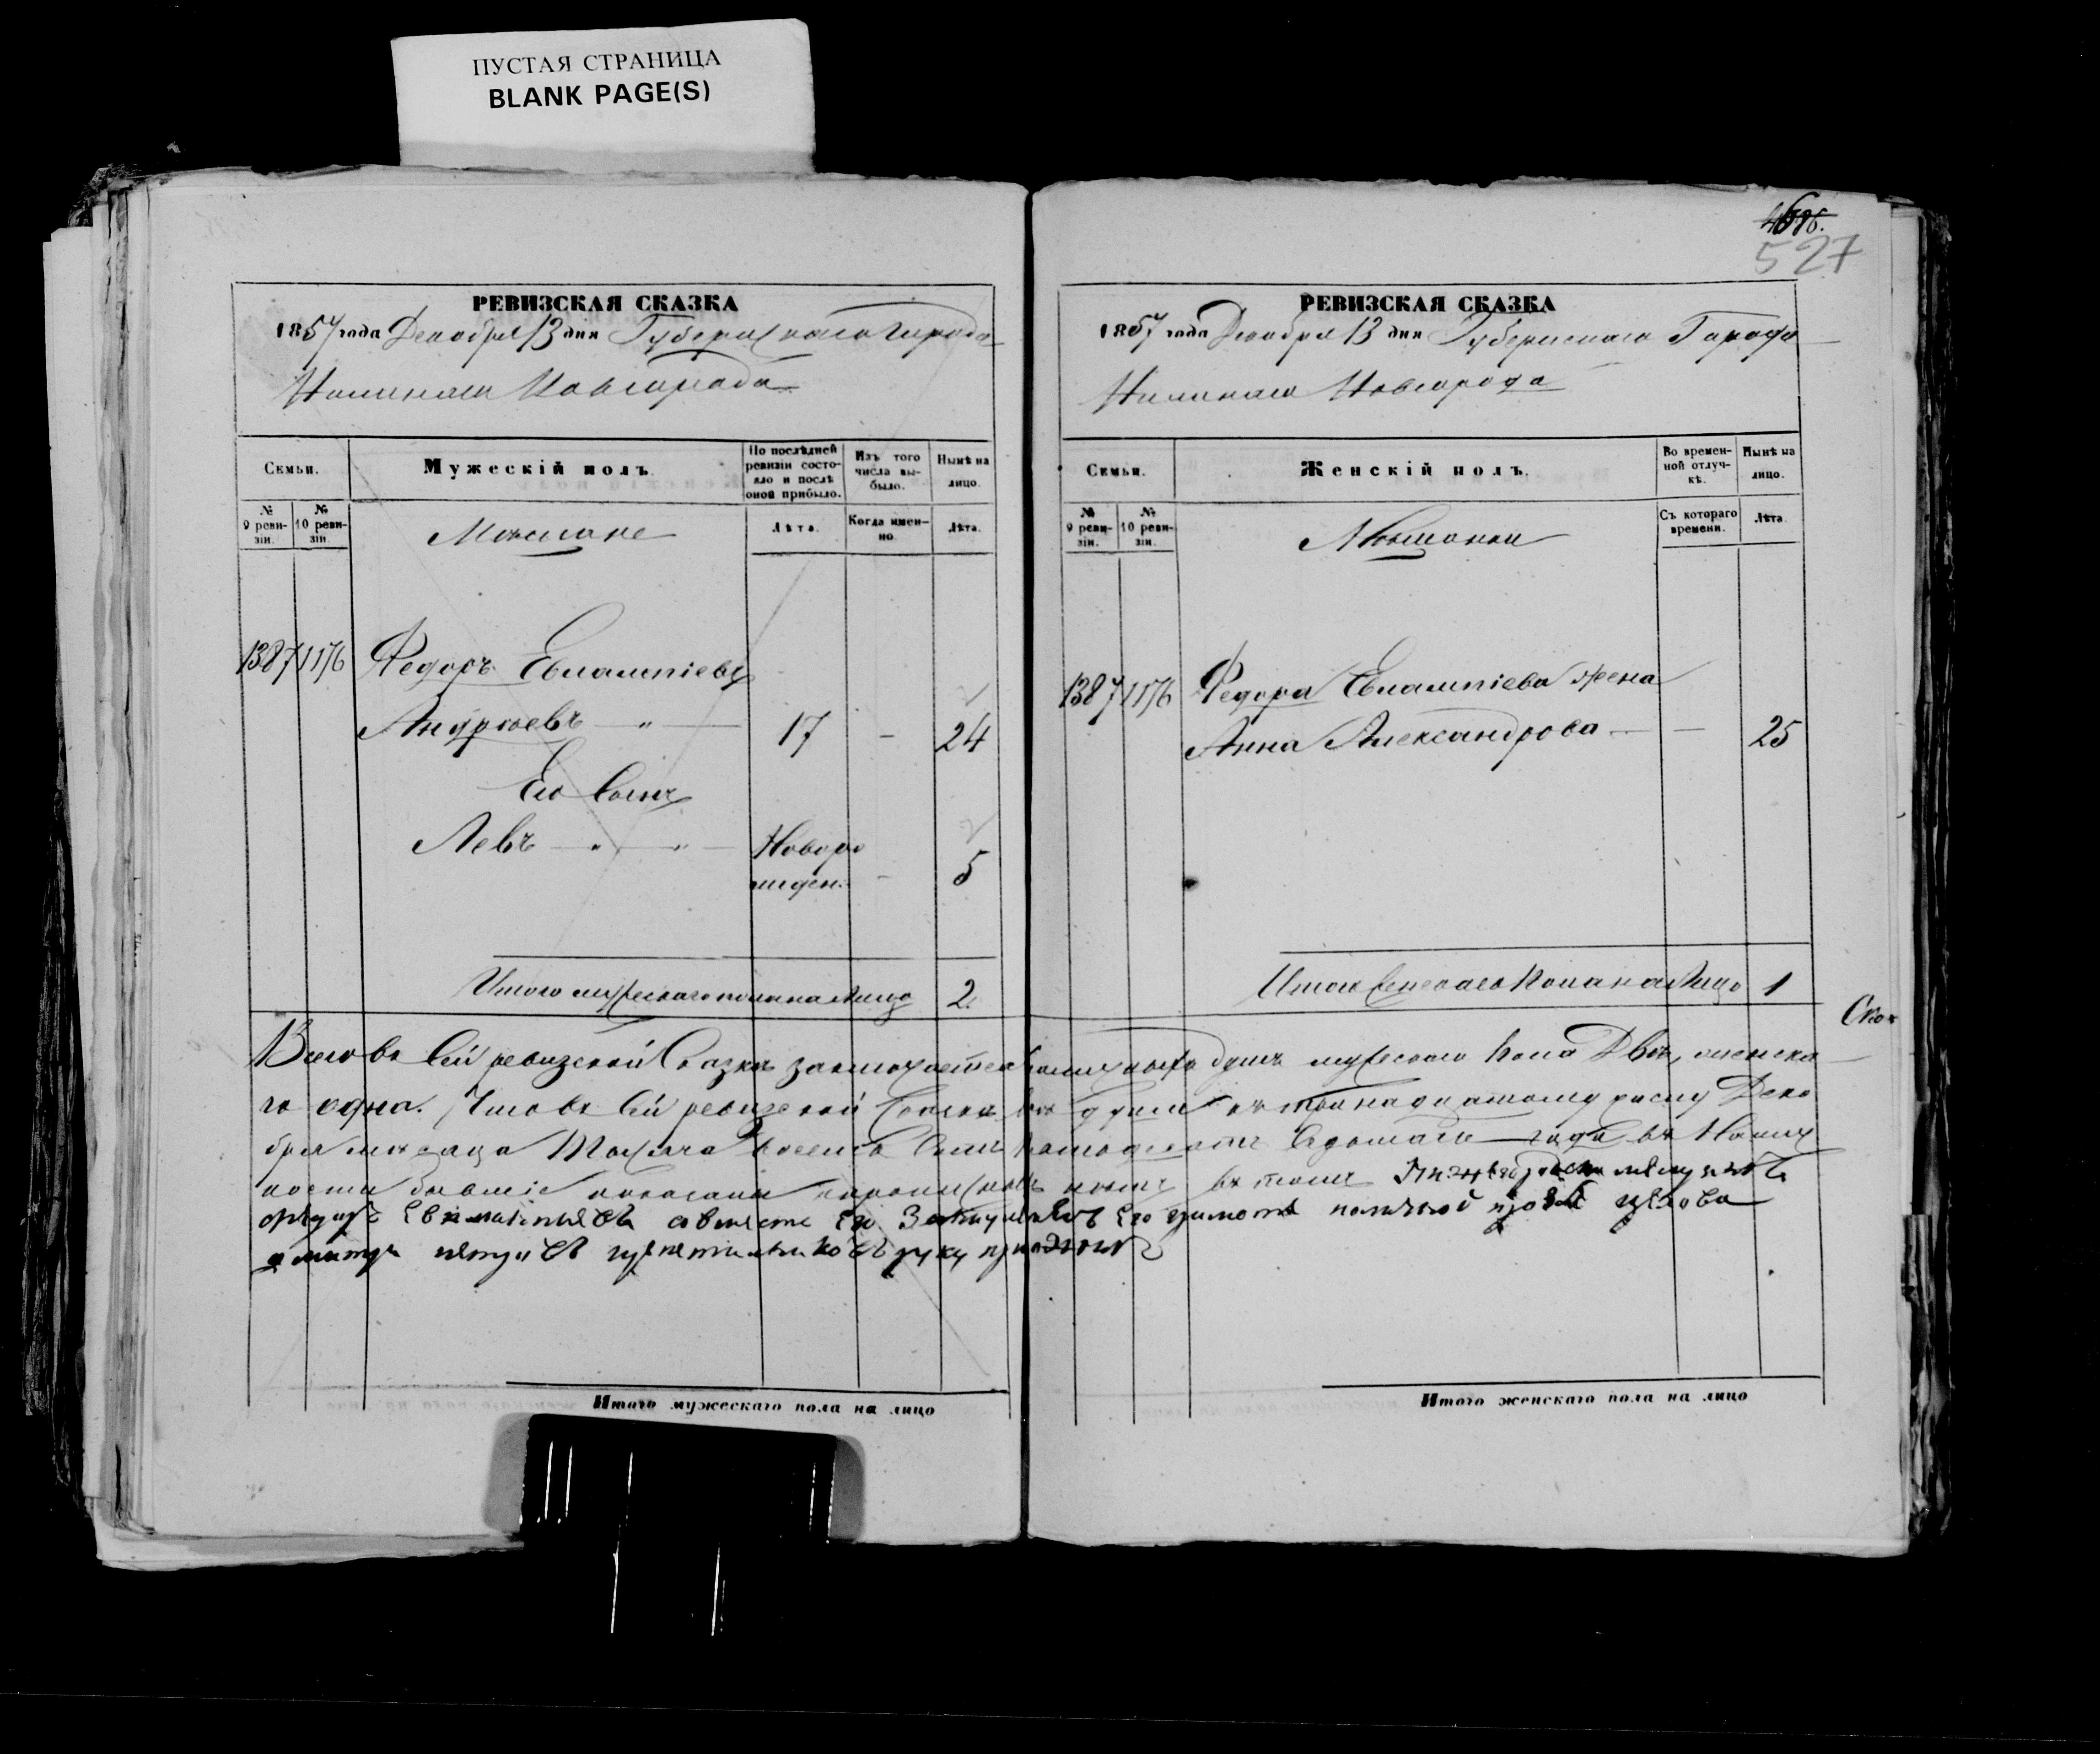 ПУСТАЯ СТРАНИЦА
BLANK PAGE(S)
РЕВИЗСКАЯ СКАЗКА
1857 года Декабря 13 дня Губернскаго города
Нижняго Новгорода
Семьи.
Мужескій полъ.
По послѣдней ревизіи состояло и послѣ оной прибыло.
Изъ того числа выбыло.
Нынѣ на лицо.
№ 9 ревизіи.
№ 10 ревизіи.
Мѣщане
Лѣта.
Когда именно
Лѣта.
1387 1176 Федоръ Евлампіевъ
Андреевъ — " — 17 — 24
Его сынъ
Левъ — " — " — Новоро
жден. — 5
Итого мужескаго пола на лицо 2
Итого мужескаго пола на лицо
527
РЕВИЗСКАЯ СКАЗКА
1857 года Декабря 13 дня Губернскаго Города
Нижняго Новгорода
Семьи.
Женскій полъ.
Во временной отлучкѣ.
Нынѣ на лицо.
№ 9 ревизіи.
№ 10 ревизіи.
Мѣщанки
Съ котораго времени.
Лѣта.
1387 1176 Федора Евлампіева жена
Анна Александрова — — 25
Итого женскаго пола на лицо 1
Всего въ сей ревизской сказкѣ заключается наличныхъ душъ мужескаго пола двѣ, женска
го одна. Что въ сей ревизской сказкѣ всѣ души къ тринадцатому числу Дека
бря мѣсяца тысяча восемь сотъ пятьдесятъ седьмаго года въ налич
ности бывшіе показаны и прописныхъ нѣтъ въ томъ
руку приложилъ
Ска
Итого женскаго пола на лицо